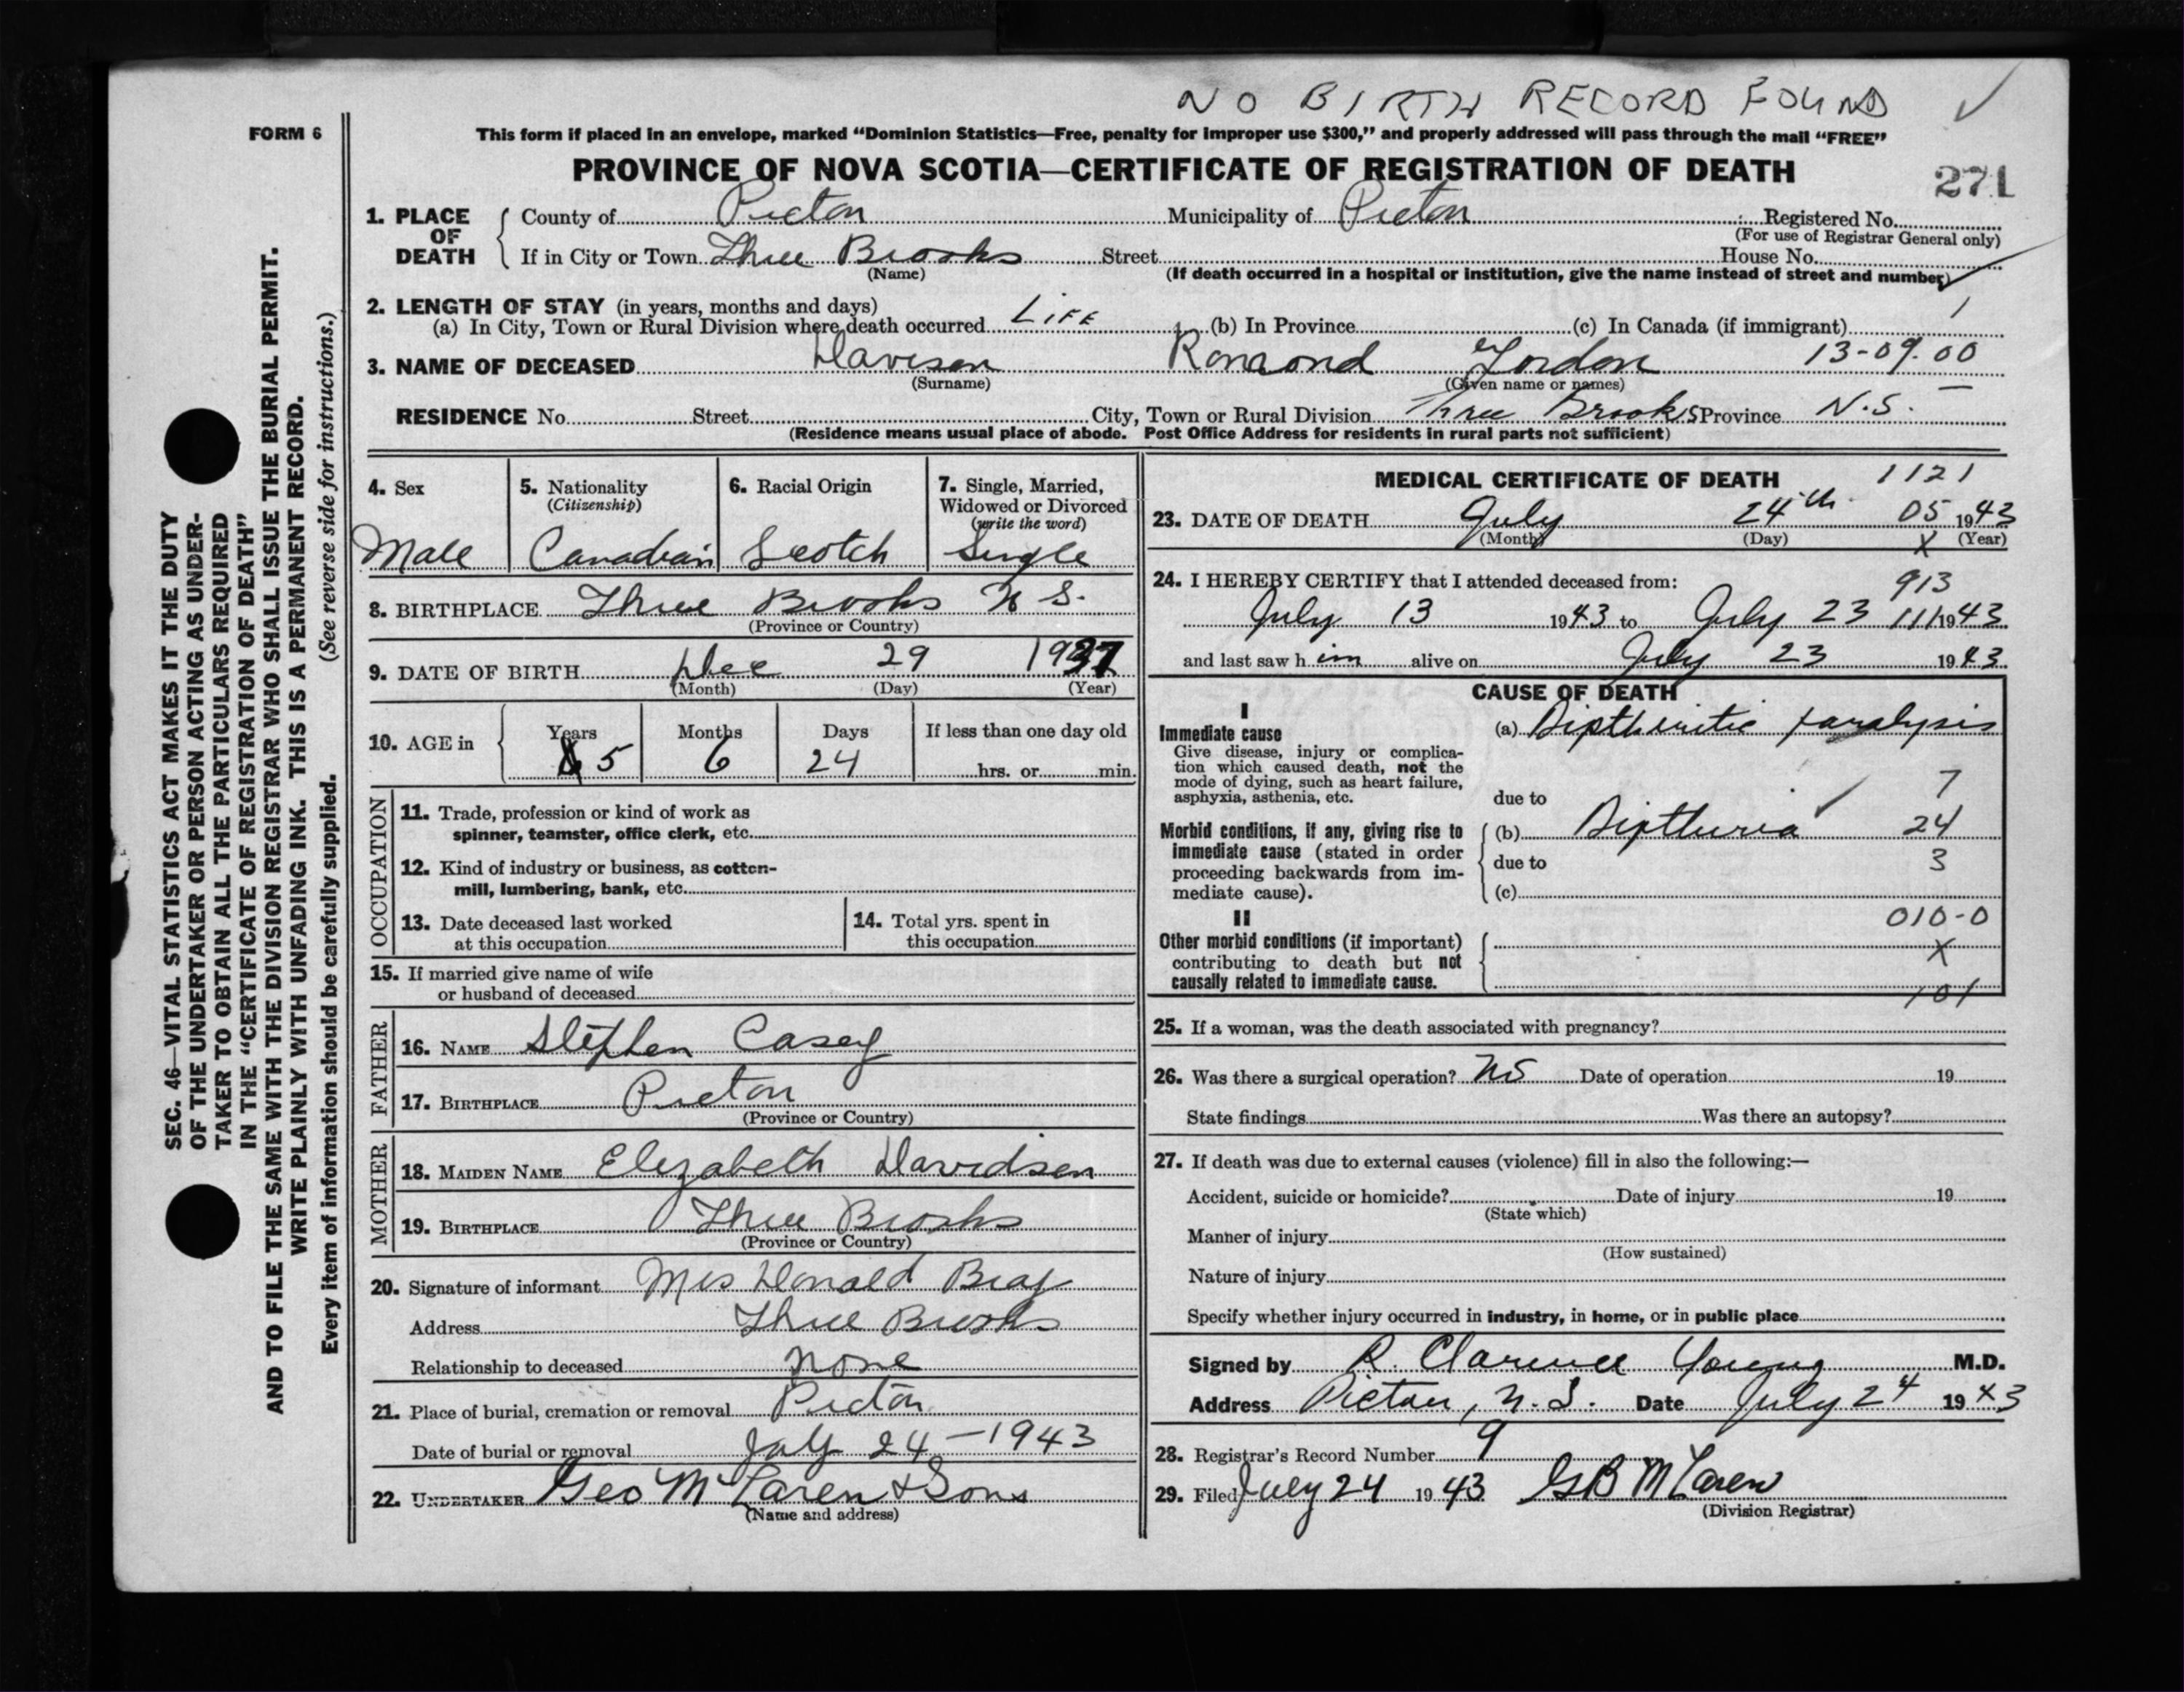 NO BIRTH RECORD FOUND ✓
FORM 6
This form if placed in an envelope, marked “Dominion Statistics—Free, penalty for improper use $300,” and properly addressed will pass through the mail “FREE”
PROVINCE OF NOVA SCOTIA—CERTIFICATE OF REGISTRATION OF DEATH
271
SEC. 46—VITAL STATISTICS ACT MAKES IT THE DUTY
OF THE UNDERTAKER OR PERSON ACTING AS UNDER-
TAKER TO OBTAIN ALL THE PARTICULARS REQUIRED
IN THE “CERTIFICATE OF REGISTRATION OF DEATH”
AND TO FILE THE SAME WITH THE DIVISION REGISTRAR WHO SHALL ISSUE THE BURIAL PERMIT.
WRITE PLAINLY WITH UNFADING INK. THIS IS A PERMANENT RECORD.
Every item of information should be carefully supplied. (See reverse side for instructions.)
1. PLACE OF DEATH
County of Pictou Municipality of Pictou Registered No.
(For use of Registrar General only)
If in City or Town Three Brooks Street House No.
(Name) (If death occurred in a hospital or institution, give the name instead of street and number)
2. LENGTH OF STAY (in years, months and days)
(a) In City, Town or Rural Division where death occurred LIFE (b) In Province (c) In Canada (if immigrant) 1
3. NAME OF DECEASED Davison Gordon 13-09.00
(Surname) (Given name or names)
RESIDENCE No. Street City, Town or Rural Division Three Brooks Province N.S.
(Residence means usual place of abode. Post Office Address for residents in rural parts not sufficient)
4. Sex
Male
5. Nationality
(Citizenship)
Canadian
6. Racial Origin
Scotch
7. Single, Married,
Widowed or Divorced
(write the word)
Single
8. BIRTHPLACE Three Brooks N S.
(Province or Country)
9. DATE OF BIRTH Dec 29 1937
(Month) (Day) (Year)
10. AGE in
Years Months Days If less than one day old
5 6 24 hrs. or min.
OCCUPATION
11. Trade, profession or kind of work as
spinner, teamster, office clerk, etc.
12. Kind of industry or business, as cotton-
mill, lumbering, bank, etc.
13. Date deceased last worked
at this occupation
14. Total yrs. spent in
this occupation
15. If married give name of wife
or husband of deceased
FATHER
16. NAME Stephen Casey
17. BIRTHPLACE Pictou
(Province or Country)
MOTHER
18. MAIDEN NAME Elizabeth Davidson
19. BIRTHPLACE Three Brooks
(Province or Country)
20. Signature of informant Mrs Donald Bray
Address Three Brooks
Relationship to deceased none
21. Place of burial, cremation or removal Pictou
Date of burial or removal July 24-1943
22. UNDERTAKER Geo McLaren & Sons
(Name and address)
MEDICAL CERTIFICATE OF DEATH 1121
23. DATE OF DEATH July 24th 05 1943
(Month) (Day) X (Year)
24. I HEREBY CERTIFY that I attended deceased from: 913
July 13 1943 to July 23 111 1943
and last saw him alive on July 23 1943
CAUSE OF DEATH
I
Immediate cause
Give disease, injury or complica-
tion which caused death, not the
mode of dying, such as heart failure,
asphyxia, asthenia, etc.
(a) Diptheritic paralysis
due to 7
Morbid conditions, if any, giving rise to
immediate cause (stated in order
proceeding backwards from im-
mediate cause).
(b) Diptheria ✓ 24
due to 3
(c)
II 010-0
Other morbid conditions (if important)
contributing to death but not
causally related to immediate cause.
X
101
25. If a woman, was the death associated with pregnancy?
26. Was there a surgical operation? No Date of operation 19
State findings Was there an autopsy?
27. If death was due to external causes (violence) fill in also the following:—
Accident, suicide or homicide? Date of injury 19
(State which)
Manner of injury
(How sustained)
Nature of injury
Specify whether injury occurred in industry, in home, or in public place
Signed by R. Clarence Young M.D.
Address Pictou, N.S. Date July 24 1943
28. Registrar’s Record Number 9
29. Filed July 24 1943 GB McLaren
(Division Registrar)